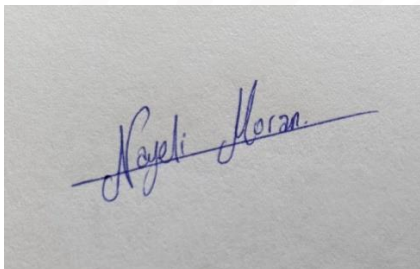 Nayeli Moran.